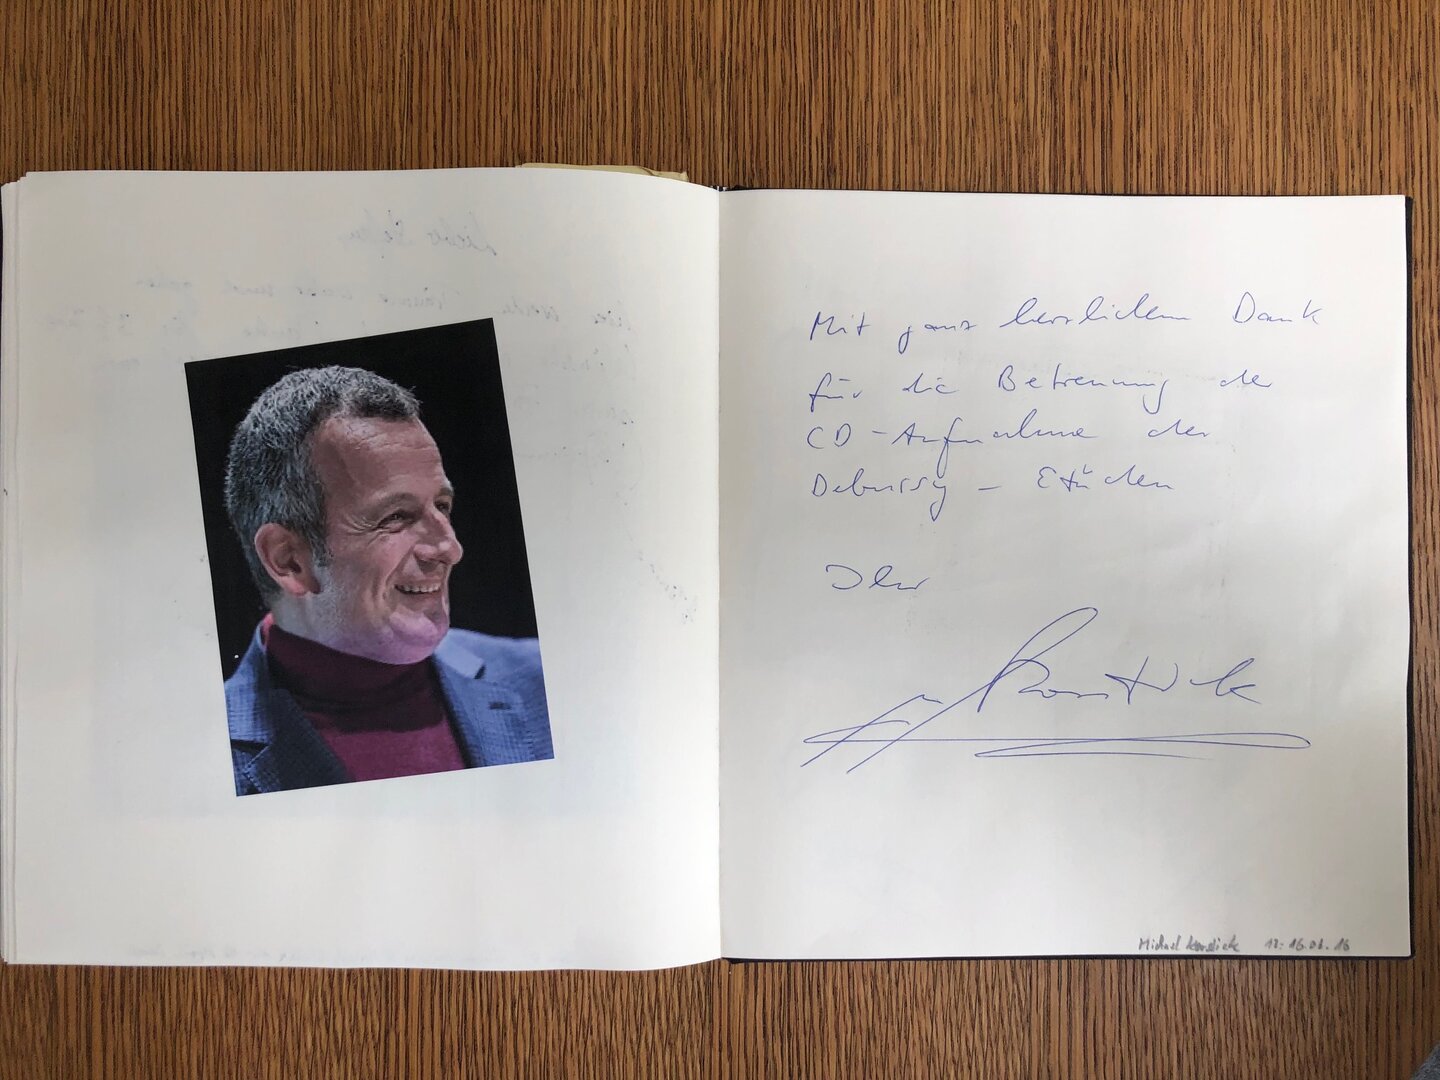 Mit ganz herzlichem Dank
für die Betreuung der
CD-Aufnahme der
Debussy - Etüden
Ihr
Korstick
Michael Korstick 12.-16.01.16